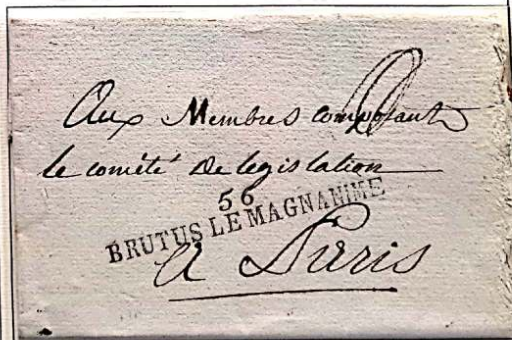 Aux Membres composant
le comité de legislation
56
BRUTUS LE MAGNANIME
a Paris